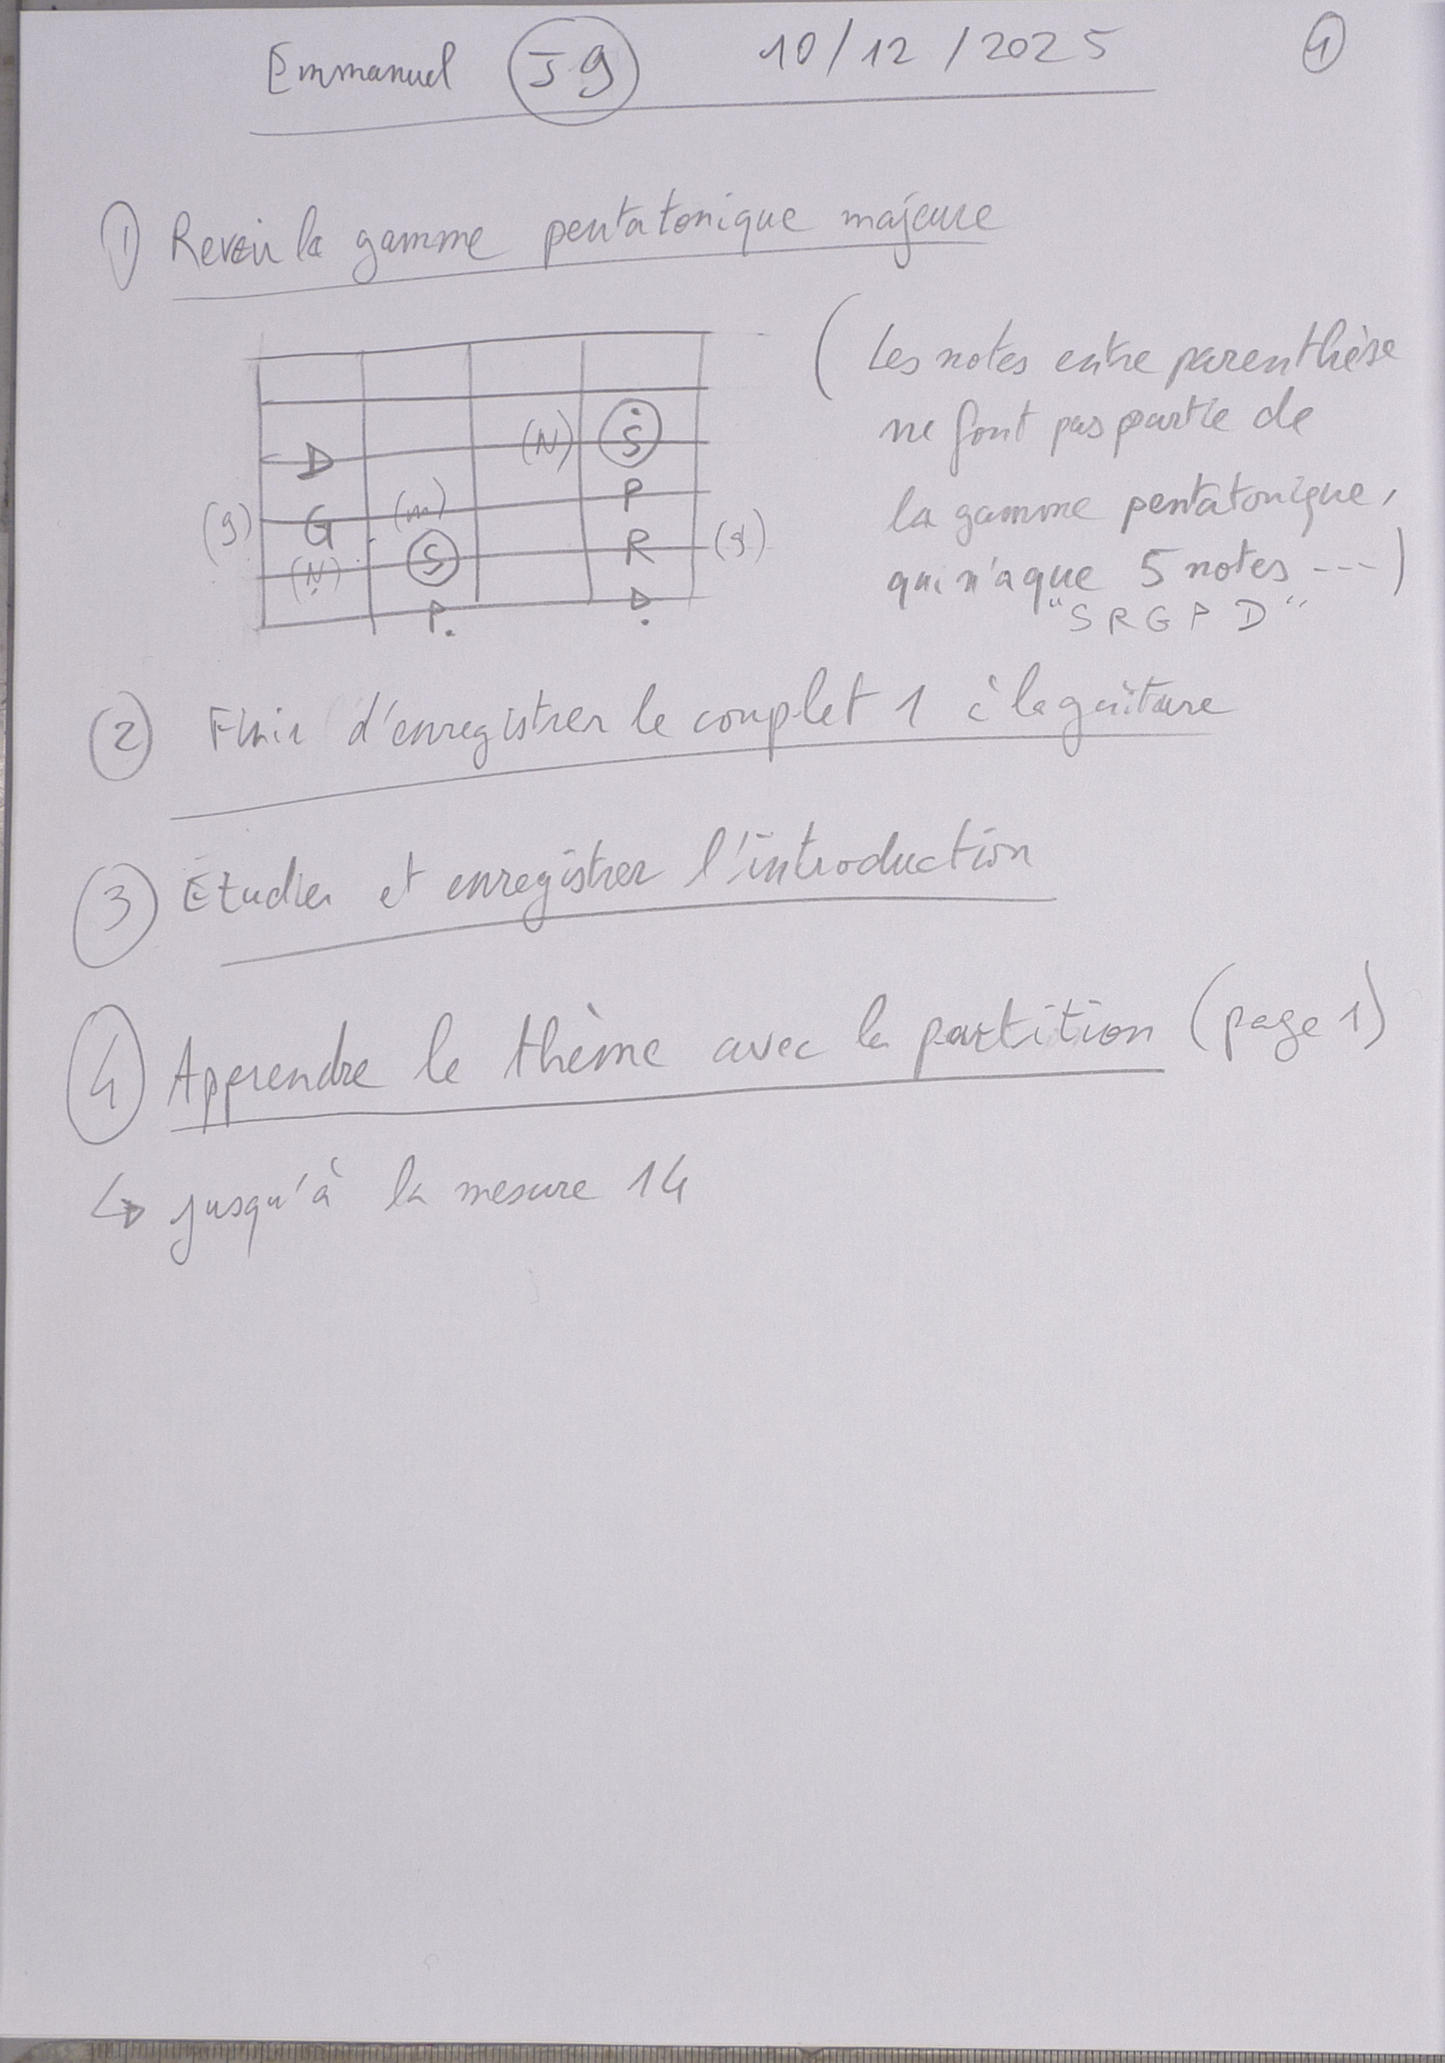 Emmanuel J9 10/12/2025 1
① Revoir la gamme pentatonique majeure
(N) Ṡ
D
P
(g) G (m)
R (g)
(Ṇ) S
P. Ḍ
(Les notes entre parenthèse
ne font pas partie de
la gamme pentatonique,
qui n'a que 5 notes ---)
"S R G P D"
② Finir d'enregistrer le couplet 1 à la guitare
③ Etudier et enregistrer l'introduction
④ Apprendre le thème avec la partition (page 1)
↳ jusqu'à la mesure 14